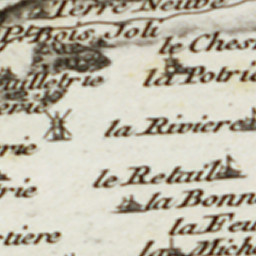 Terre Neuve
P. Bois Joli
le Ches
la Potrie
uilletrie
erie
la Riviere
rie
le Retail
rie
la Bonn
la Feu
tiere
la Miche